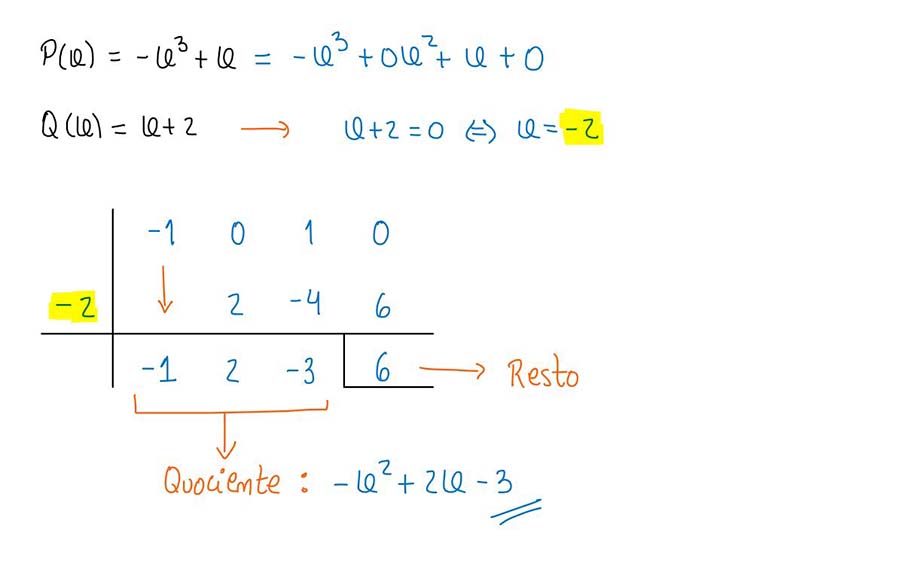 P(x) = -x³ + x = -x³ + 0x² + x + 0
Q(x) = x + 2 → x + 2 = 0 ⇔ x = -2
-1 0 1 0
-2 ↓ 2 -4 6
-1 2 -3 6 → Resto
Quociente : -x² + 2x - 3